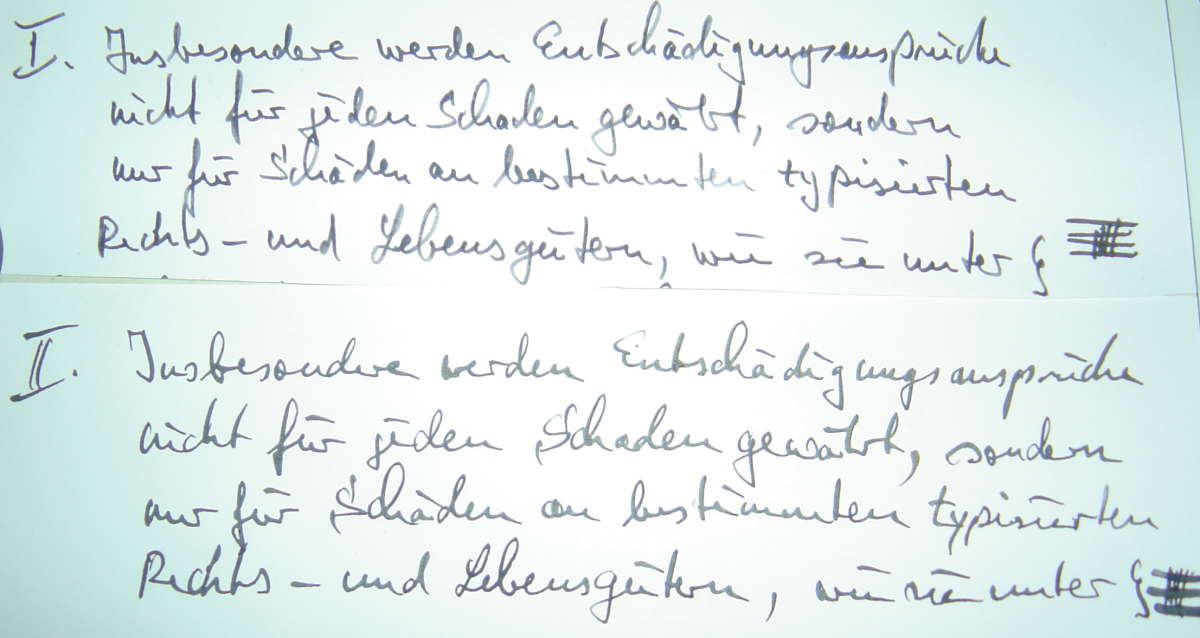 I. Insbesondere werden Entschädigungsansprüche
nicht für jeden Schaden gewährt, sondern
nur für Schäden an bestimmten typisierten
Rechts- und Lebensgütern, wie sie unter §
II. Insbesondere werden Entschädigungsansprüche
nicht für jeden Schaden gewährt, sondern
nur für Schäden an bestimmten typisierten
Rechts- und Lebensgütern, wie sie unter §